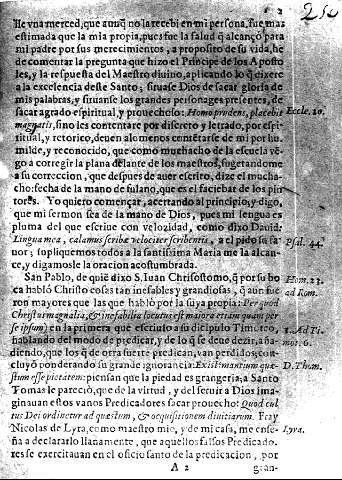 2 250
lle vna merced, que aunq̃ no la recebi en mi persona, fue mas
estimada que la mia propia, pues fue la salud q̃ alcançó para
mi padre por sus merecimientos, a proposito de su vida, he
de comentar la pregunta que hizo el Principe de los Aposto
les, y la respuesta del Maestro diuino, aplicando lo q̃ dixere
a la excelencia deste Santo; siruase Dios de sacar gloria de
mis palabras, y siruanse los grandes personages presentes, de
sacar agrado espiritual, y prouechoso: Homo prudens, placebit Eccle. 20.
magnatis, sino les contentare por discreto y letrado, por espi-
ritual, y retorico, deuen alomenos contētarse de mi por hu-
milde, y reconocido, que como muchacho de la escuela vē-
go a corregir la plana delante de los maestros, sugetandome
a su correccion, que despues de auer escrito, dize el mucha-
cho: fecha de la mano de fulano, que es el faciebat de los pin-
tores. Yo quiero començar, acertando al principio, y digo,
que mi sermon sea de la mano de Dios, pues mi lengua es
pluma del que escriue con velozidad, como dixo Dauid:
Lingua mea, calamus scribæ velociter scribentis, a el pido su fa- Psal. 44.
uor; supliquemos todos a la santissima Maria me la alcan-
ce, y digamosle la oracion acostumbrada.
San Pablo, de quiē dixo S. Iuan Chrisostomo, q̃ por su bo Hom. 23.
ca habló Christo cosas tan inefables y grandiosas, q̃ aun fue ad Rom.
ron mayores que las que habló por la suya propia: Per quod
Christus magnalia, & inefabilia locutus est maiora etiam quam per
se ipsum) en la primera que escriuio a su dicipulo Timoteo, 1. Ad Ti-
hablando del modo de predicar, y de lo q̃ se deue dezir, aña- mot. 6.
diendo, que los q̃ de otra suerte predican, van perdidos; con-
cluyó ponderando su grande ignorancia: Existimantium quæs- D. Thom.
tum esse pietatem: piensan que la piedad es grangeria; a Santo
Tomas le pareció, que de la virtud, y del seruir a Dios ima-
ginauan estos vanos Predicadores sacar prouecho: Quod cul
tus Dei ordinetur ad quæstum, & acquisitionem diuitiarum. Fray
Nicolas de Lyra, como maestro mio, y de mi casa, me ense- Lyra.
ña a declararlo llanamente, que aquellos falsos Predicado-
res se exercitauan en el oficio santo de la predicacion, por
A 2 gran-